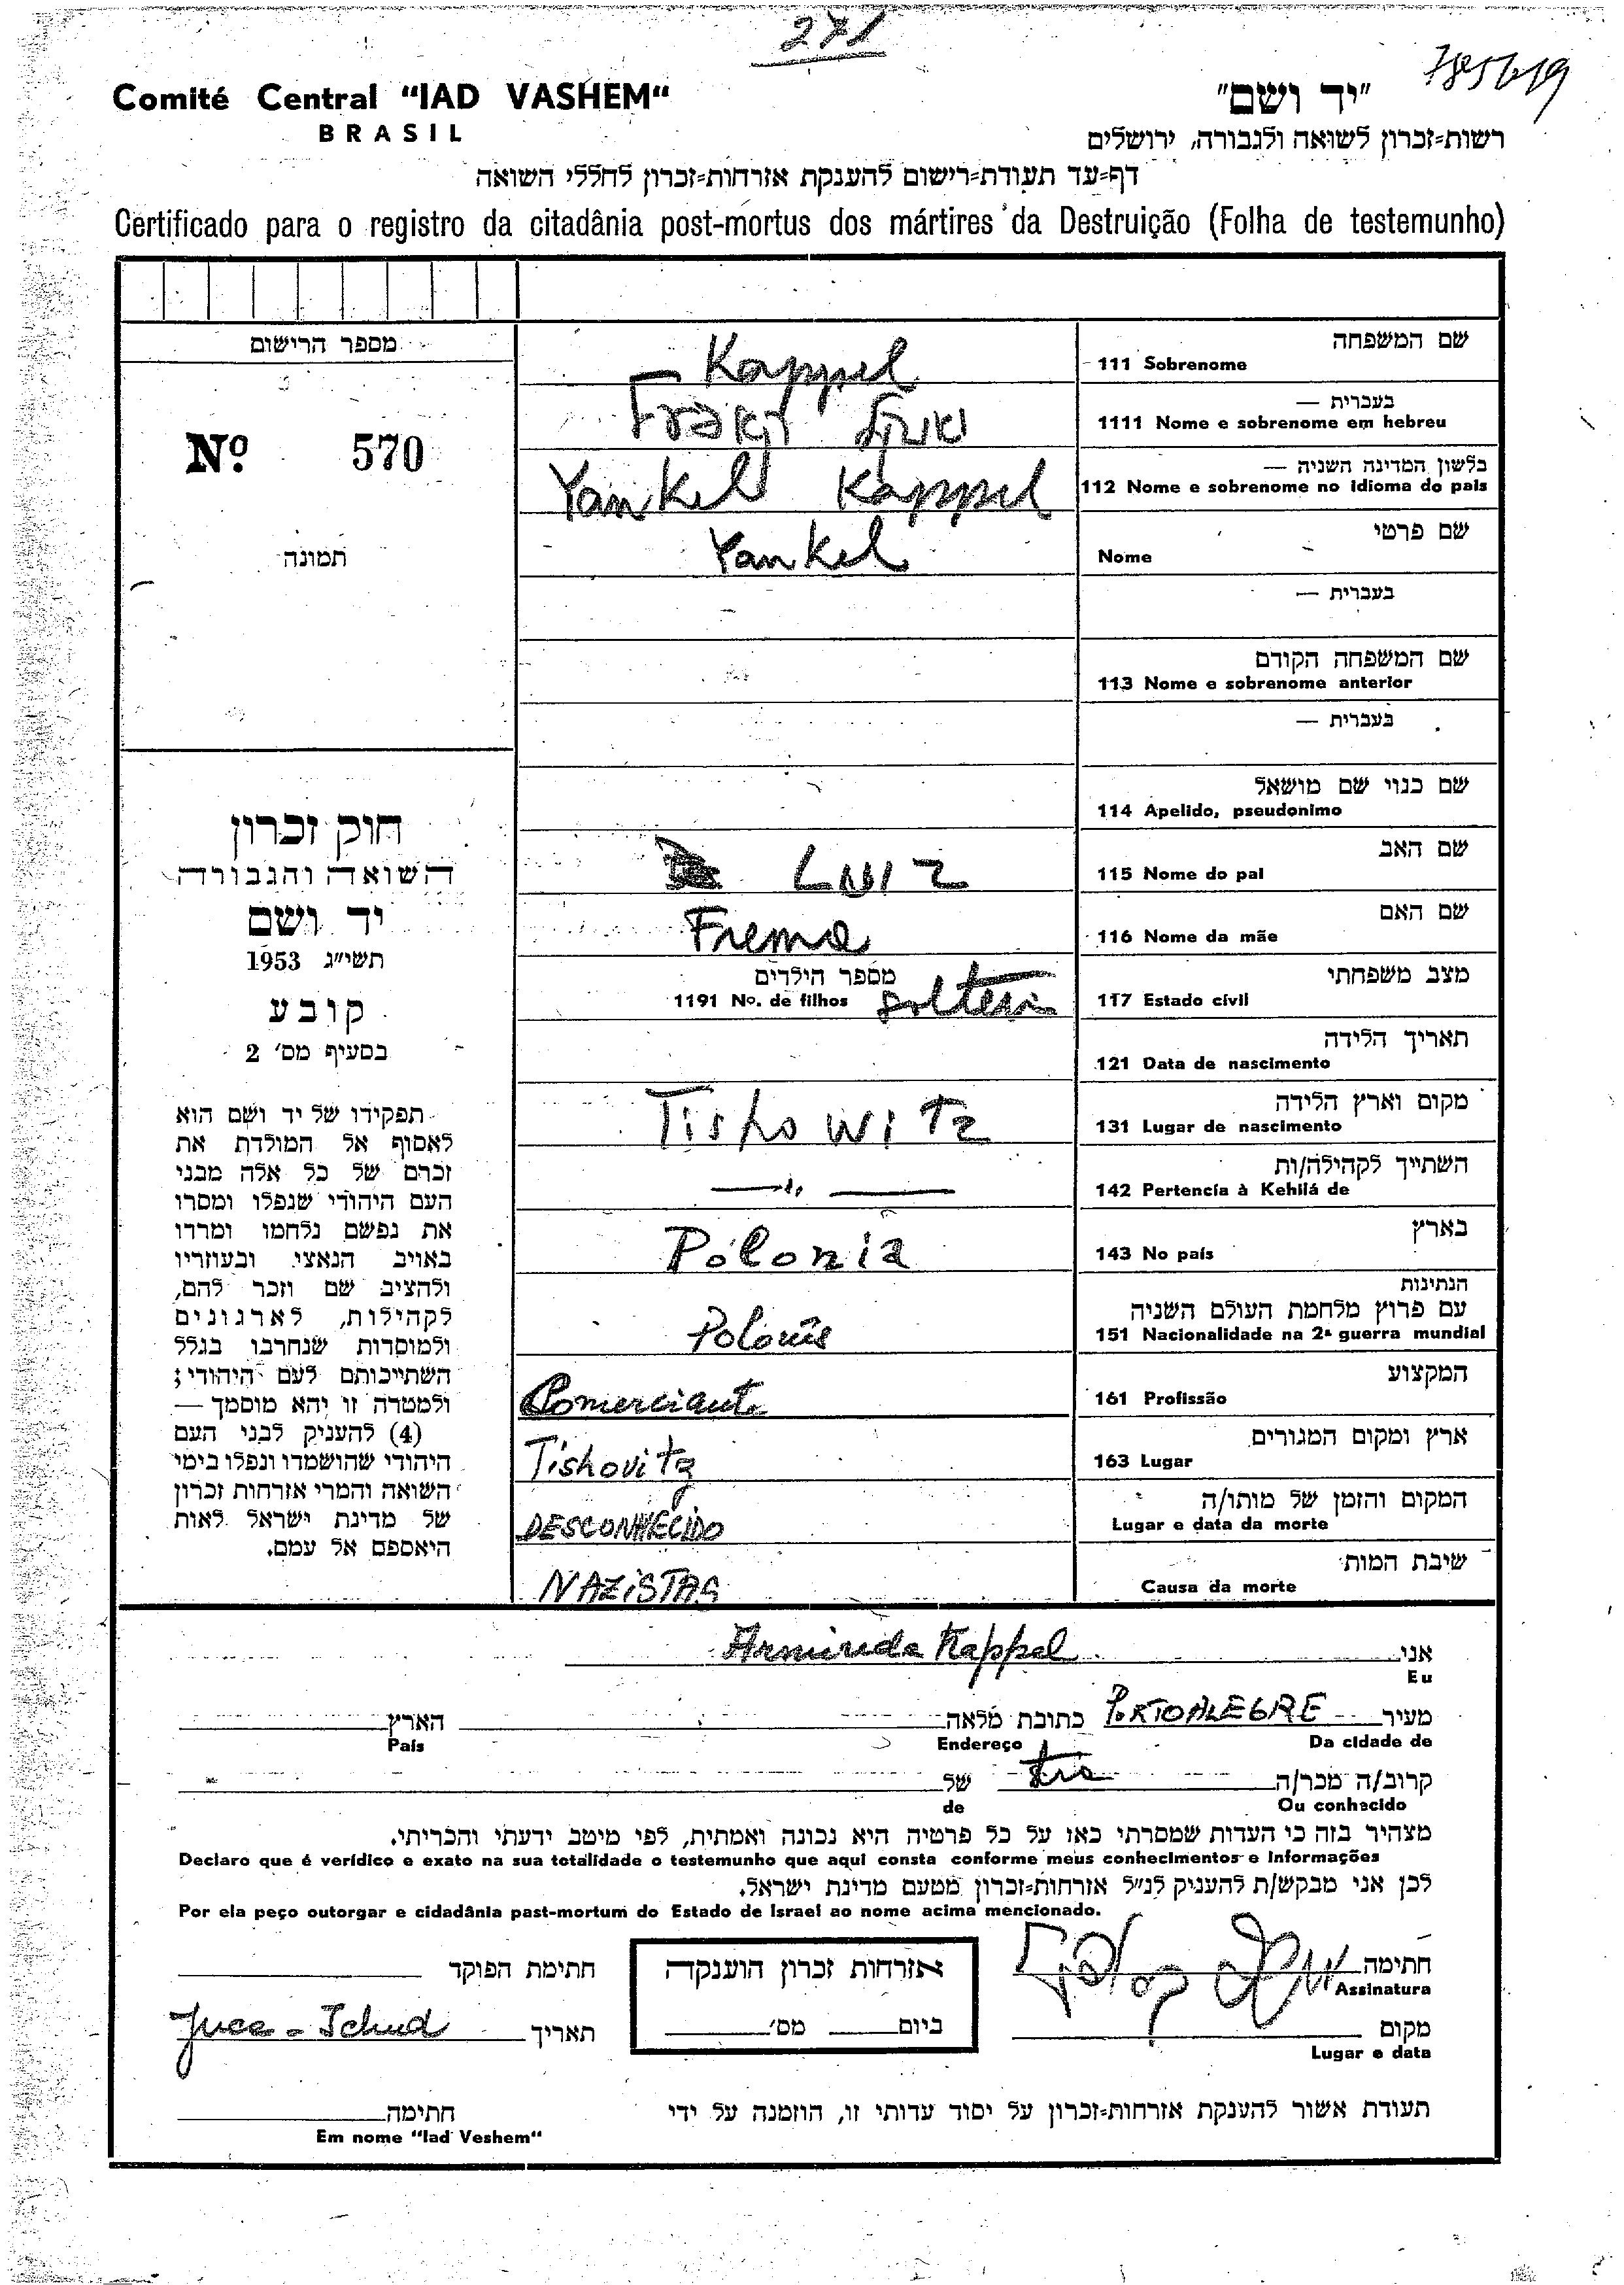 271
785619
Comité Central "IAD VASHEM"
BRASIL
"יד ושם"
רשות=זכרון לשואה ולגבורה, ירושלים
דף=עד תעודת=רישום להענקת אזרחות=זכרון לחללי השואה
Certificado para o registro da citadânia post-mortus dos mártires da Destruição (Folha de testemunho)
מספר הרישום
Nº 570
תמונה
Kappel
שם המשפחה
111 Sobrenome
בעברית —
1111 Nome e sobrenome em hebreu
Yankel Kappel
בלשון המדינה השניה —
112 Nome e sobrenome no idioma do país
Yankel
שם פרטי
Nome
בעברית —
שם המשפחה הקודם
113 Nome e sobrenome anterior
בעברית —
שם כנוי שם מושאל
114 Apelido, pseudonimo
Luiz
שם האב
115 Nome do pal
Frema
שם האם
116 Nome da mãe
מספר הילדים
1191 Nº. de filhos
solteiro
מצב משפחתי
117 Estado cívil
תאריך הלידה
121 Data de nascimento
Tishowitz
מקום וארץ הלידה
131 Lugar de nascimento
— " —
השתייך לקהילה/ות
142 Pertencía à Kehilá de
Polonia
בארץ
143 No país
הנתינות
עם פרוץ מלחמת העולם השניה
Polonês
151 Nacionalidade na 2ª guerra mundial
Comerciante
המקצוע
161 Profissão
Tishovitz
ארץ ומקום המגורים
163 Lugar
DESCONHECIDO
המקום והזמן של מותו/ה
Lugar e data da morte
NAZISTAS
שיבת המות
Causa da morte
חוק זכרון
השואה והגבורה
יד ושם
תשי"ג 1953
קובע
בסעיף מס' 2
תפקידו של יד ושם הוא
לאסוף אל המולדת את
זכרם של כל אלה מבני
העם היהודי שנפלו ומסרו
את נפשם נלחמו ומרדו
באויב הנאצי ובעוזריו
ולהציב שם וזכר להם,
לקהילות, לארגונים
ולמוסדות שנחרבו בגלל
השתייכותם לעם היהודי;
ולמטרה זו יהא מוסמך —
(4) להעניק לבני העם
היהודי שהושמדו ונפלו בימי
השואה והמרי אזרחות זכרון
של מדינת ישראל לאות
היאספם אל עמם.
אני Armirida Kappel
Eu
מעיר PORTO ALEGRE כתובת מלאה הארץ
Da cidade de Endereço País
קרוב/ה מכר/ה tio של
Ou conhecido de
מצהיר בזה כי העדות שמסרתי כאן על כל פרטיה היא נכונה ואמתית, לפי מיטב ידעתי והכריתי.
Declaro que é verídico e exato na sua totalidade o testemunho que aqui consta conforme meus conhecimentos e informações
לכן אני מבקש/ת להעניק לנ"ל אזרחות=זכרון מטעם מדינת ישראל.
Por ela peço outorgar e cidadânia past-mortum do Estado de Israel ao nome acima mencionado.
חתימה
Assinatura
אזרחות זכרון הוענקה
ביום מס'
חתימת הפוקד
מקום
Lugar e data
תאריך
תעודת אשור להענקת אזרחות=זכרון על יסוד עדותי זו, הוזמנה על ידי
חתימה
Em nome "Iad Veshem"